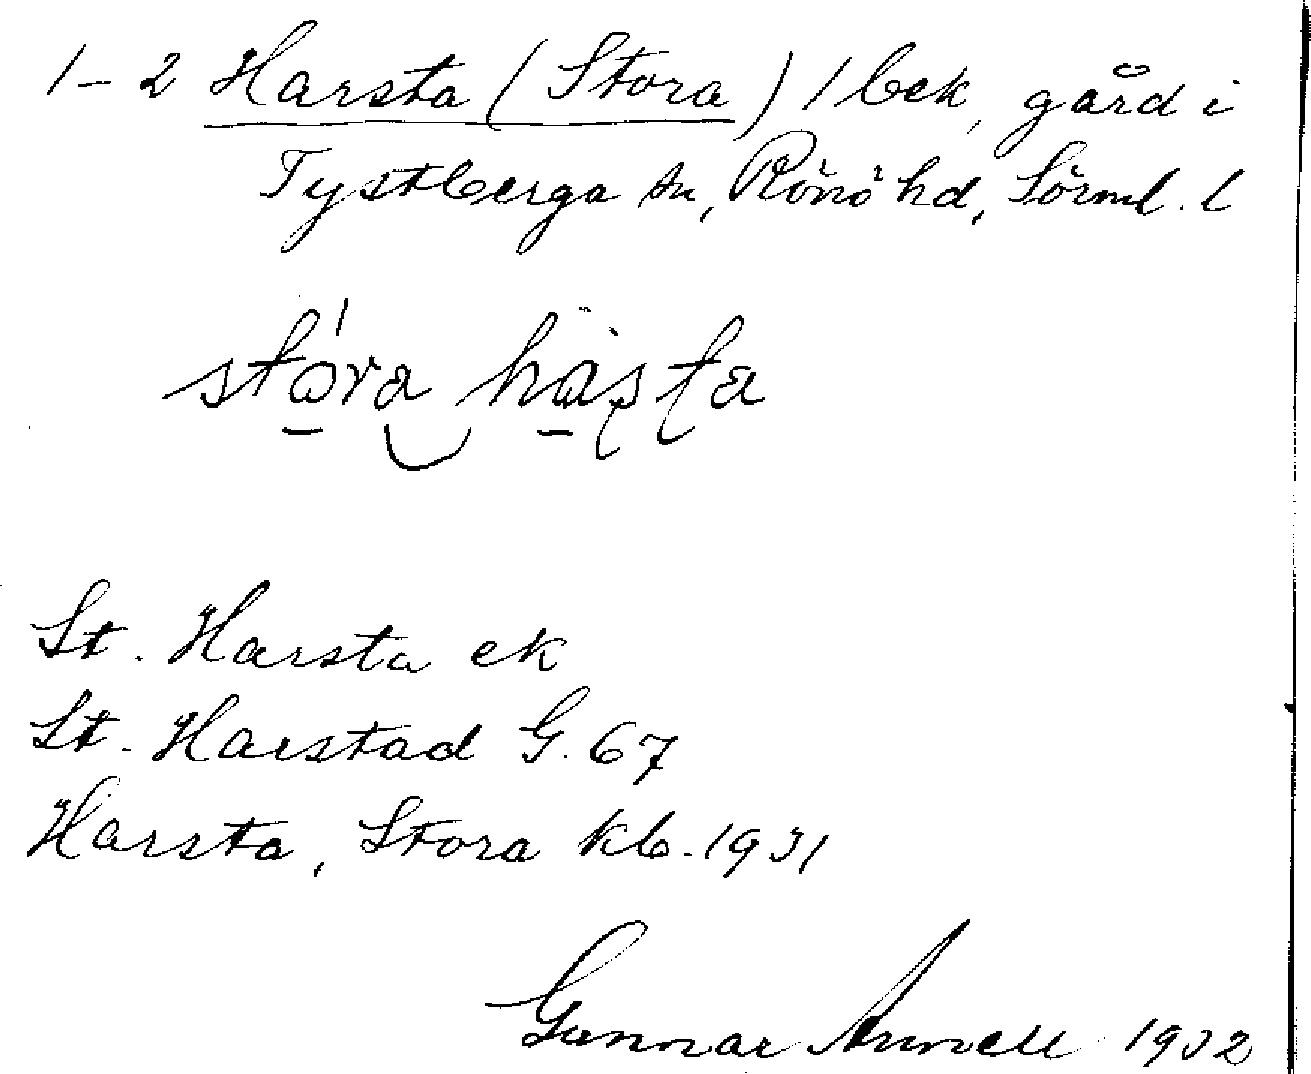 1-2 Harsta (Stora) 1 bek, gård i
Tystberga sn, Rönö hd, Sörml. l
stora hästa
St. Harsta ek
St. Harstad G. 67
Harsta, Stora kb. 1931
Gunnar 1932